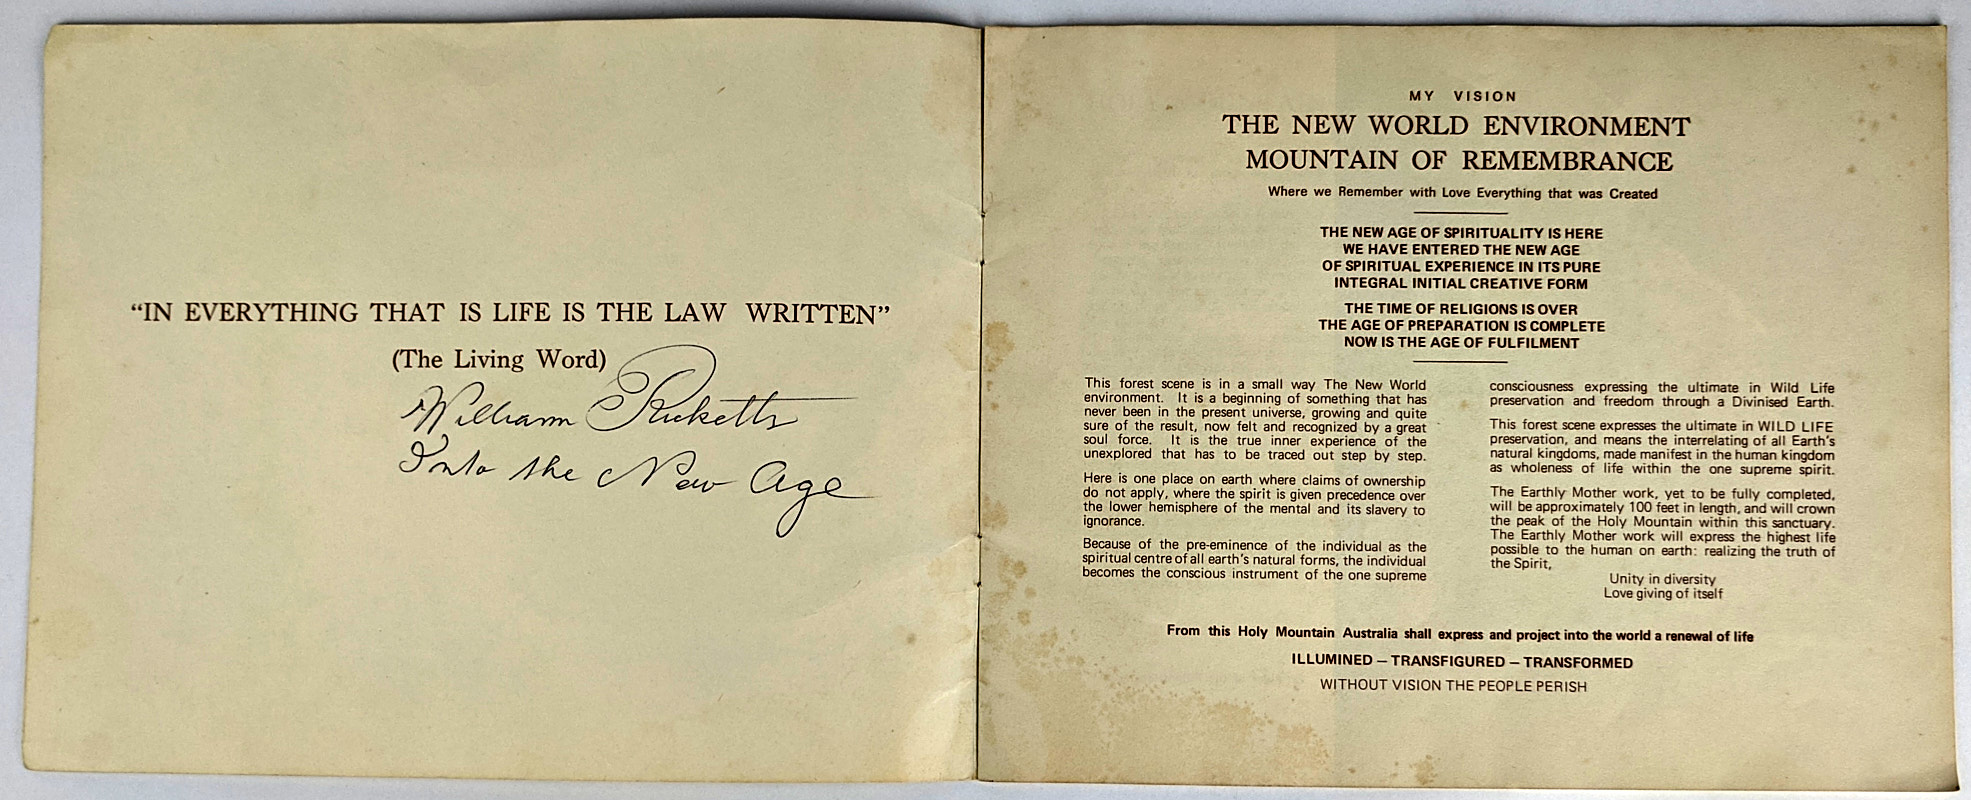 “IN EVERYTHING THAT IS LIFE IS THE LAW WRITTEN”
(The Living Word)
William Ricketts
Into the New Age
MY VISION
THE NEW WORLD ENVIRONMENT
MOUNTAIN OF REMEMBRANCE
Where we Remember with Love Everything that was Created
THE NEW AGE OF SPIRITUALITY IS HERE
WE HAVE ENTERED THE NEW AGE
OF SPIRITUAL EXPERIENCE IN ITS PURE
INTEGRAL INITIAL CREATIVE FORM
THE TIME OF RELIGIONS IS OVER
THE AGE OF PREPARATION IS COMPLETE
NOW IS THE AGE OF FULFILMENT
This forest scene is in a small way The New World
environment. It is a beginning of something that has
never been in the present universe, growing and quite
sure of the result, now felt and recognized by a great
soul force. It is the true inner experience of the
unexplored that has to be traced out step by step.
Here is one place on earth where claims of ownership
do not apply, where the spirit is given precedence over
the lower hemisphere of the mental and its slavery to
ignorance.
Because of the pre-eminence of the individual as the
spiritual centre of all earth's natural forms, the individual
becomes the conscious instrument of the one supreme
consciousness expressing the ultimate in Wild Life
preservation and freedom through a Divinised Earth.
This forest scene expresses the ultimate in WILD LIFE
preservation, and means the interrelating of all Earth's
natural kingdoms, made manifest in the human kingdom
as wholeness of life within the one supreme spirit.
The Earthly Mother work, yet to be fully completed,
will be approximately 100 feet in length, and will crown
the peak of the Holy Mountain within this sanctuary.
The Earthly Mother work will express the highest life
possible to the human on earth: realizing the truth of
the Spirit,
Unity in diversity
Love giving of itself
From this Holy Mountain Australia shall express and project into the world a renewal of life
ILLUMINED – TRANSFIGURED – TRANSFORMED
WITHOUT VISION THE PEOPLE PERISH